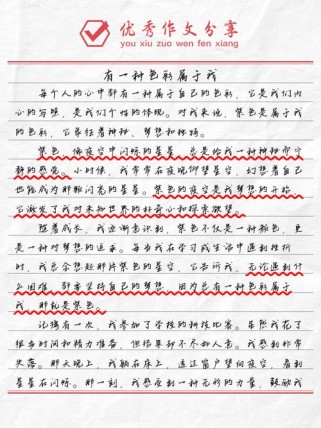 优秀作文分享
you xiu zuo wen fen xiang
有一种色彩属于我
每个人的心中都有一种属于自己的色彩，它是我们内
心的写照，是我们个性的体现。对我来说，紫色是属于我
的色彩，它象征着神秘、梦想和格调。
紫色，像夜空中闪烁的星星，总是给我一种神秘而宁
静的感觉。小时候，我常常在夜晚仰望星空，幻想着自己
也能成为那颗闪亮的星星。紫色的夜空是我梦想的开始，
它激发了我对未知世界的好奇心和探索欲望。
随着成长，我逐渐意识到，紫色不仅是一种颜色，更
是一种对梦想的追求。每当我在学习或生活中遇到挫折
时，我总会想起那片紫色的星空，它告诉我，无论遇到什
么困难，都要坚持自己的梦想，因为总有一种色彩属于
我，那就是紫色。
记得有一次，我参加了学校的科技比赛。虽然我花了
很多时间和精力准备，但结果却不尽如人意。我感到非常
失落。那天晚上，我躺在床上，透过窗户望向夜空，看到
星星在闪烁。那一刻，我感受到一种无形的力量，鼓励我